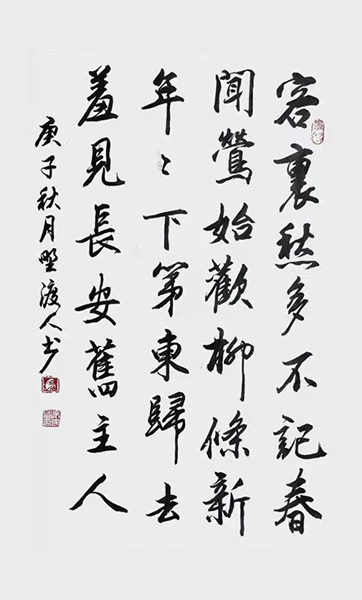 客裏愁多不記春
聞鶯始歡柳條新
年〻下第東歸去
羞見長安舊主人
庚子秋月野渡人书